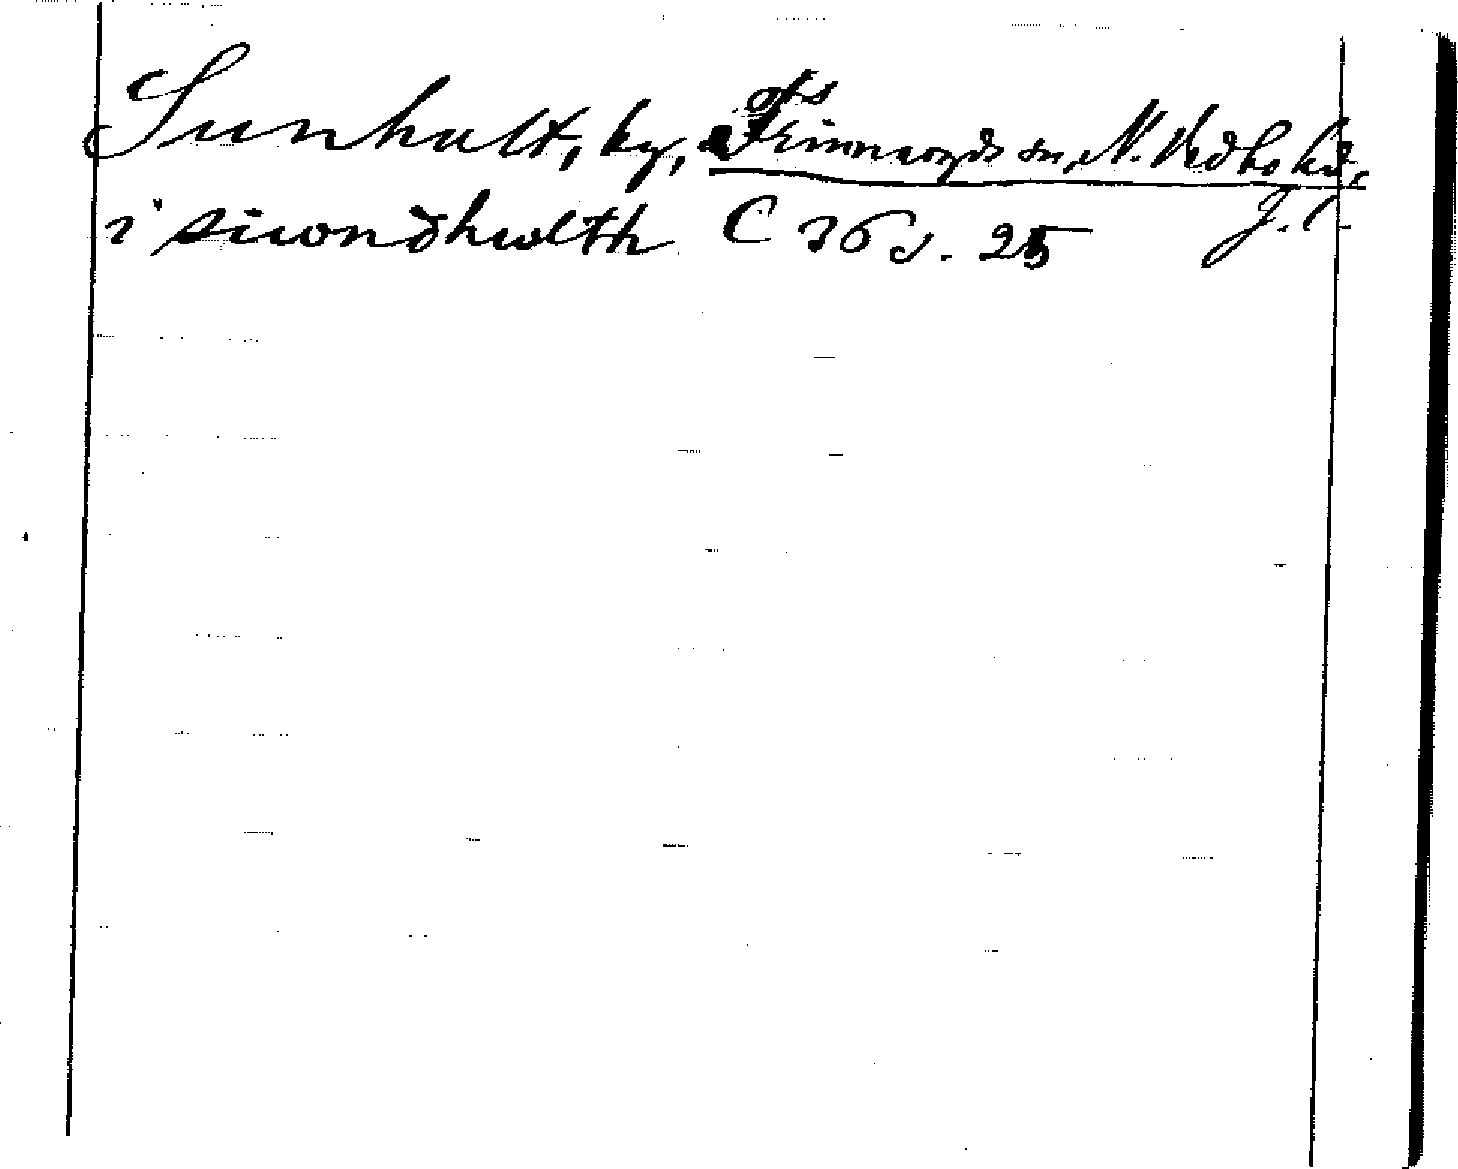 Sunhult, by, Frinnaryds sn, N. Vedbo hd,
J. l.
i siwondhwlth C 36 s. 25